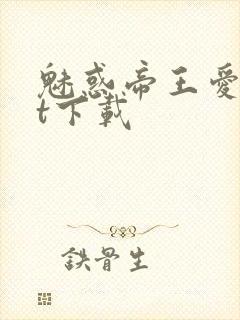 魅惑帝王愛
t下載
鉄骨生